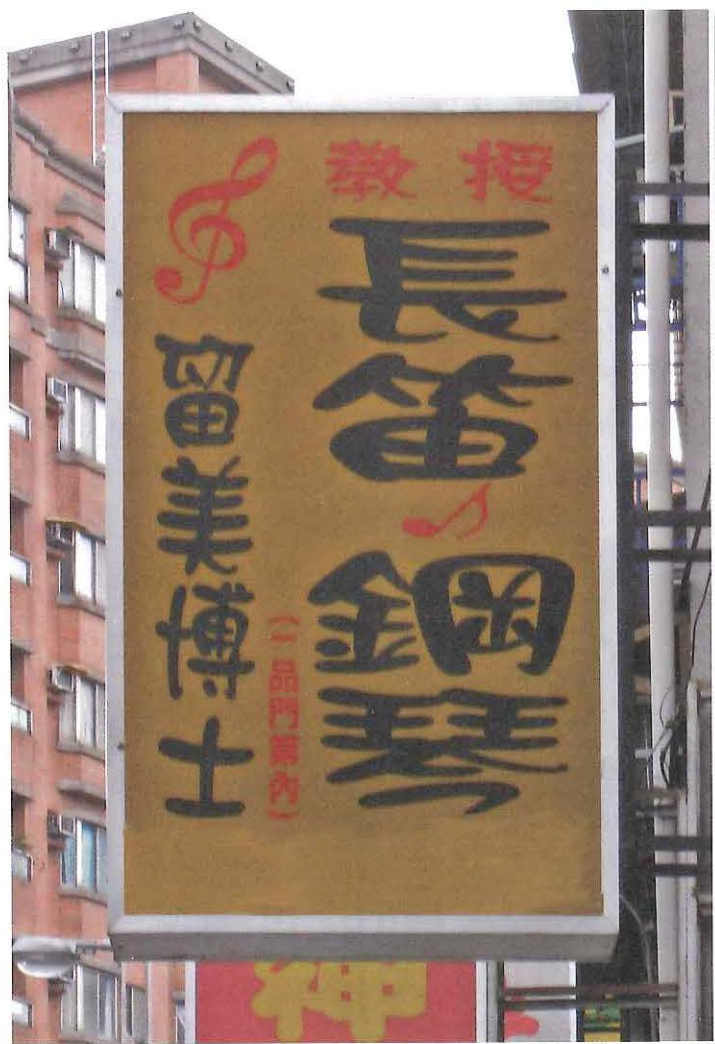 教授
長笛
鋼琴
(一品門第內)
留美博士
神